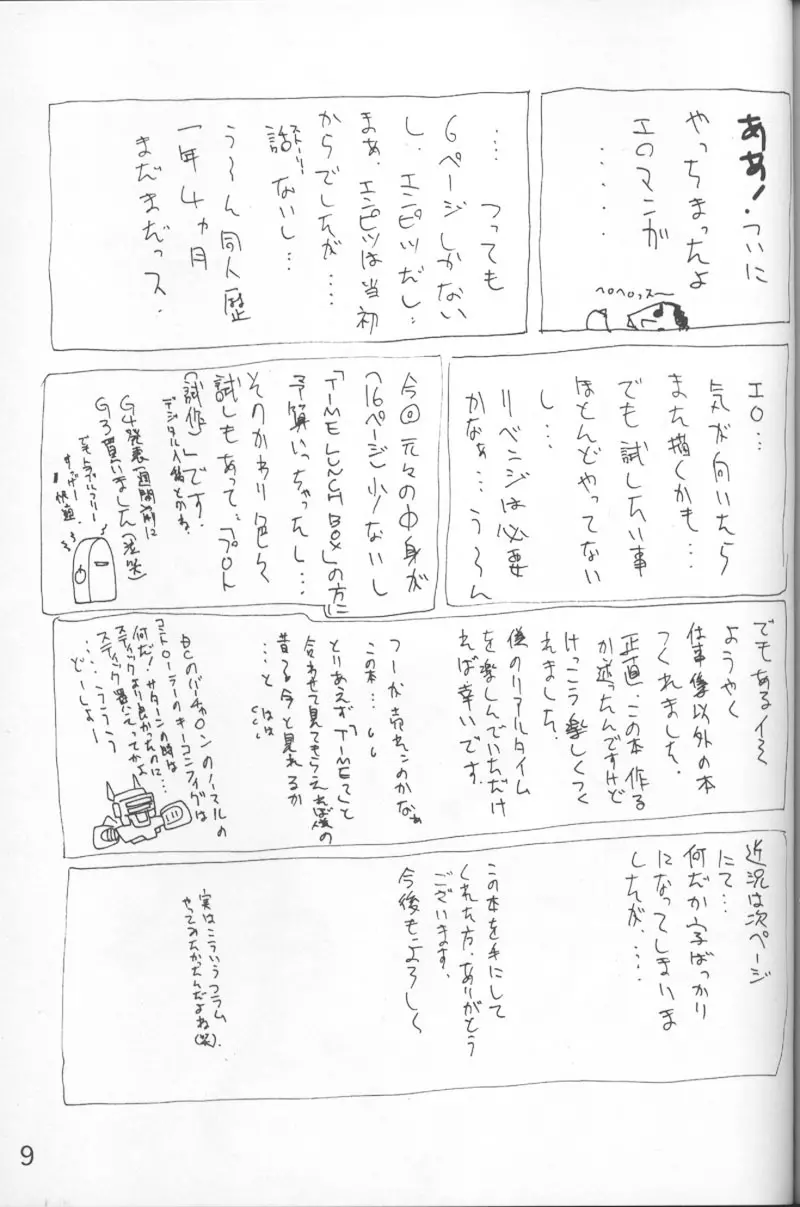 ああ!ついに
やっちまったよ
エロマンガ
・・・・・
ヘロヘロッス〜
…つっても
6ページしかない
し、エンピツだし…
まぁ、エンピツは当初
からでしたが……
話ないし…
ストーリー
う〜ん同人歴
一年4ヵ月
まだまだっス.
エロ…
気が向いたら
また描くかも…
でも試したい事
ほとんどやってない
し…
リベンジは必要
かなぁ…う〜ん
今回元々の中身が
(16ページ)少ないし
「TIME LUNCH BOX」の方に
予算いっちゃったし…
そのかわり色々
試しもあって…「プロト
(試作)」です.
デジタル入稿とかね.
G4発表一週間前に
G3買いました(泣笑)
でもトラブルフリー
すっげー
快適.
でもある1〜く
ようやく
仕事像以外の本
つくれました.
正直、この本作る
か迷ったんですけど
けっこう楽しくつく
れました.
僕のリアルタイム
を楽しんでいただけ
れば幸いです.
つーか売れんのかなぁ
この本…
とりあえず「TIMEで」と
合わせて見てもらえれば僕の
昔&今と見れるか
…と
はは
DCのバーチャロンのノーマルの
コントローラーのキーコンフィグは
何だ!サターンの時は
スティックより良かったのに…
スティック買えってかよ
……うううう
どーしよー
近況は次ページ
にて…
何だか字ばっかり
になってしまいま
したが、….
この本を手にして
くれた方.ありがとう
ございます.
今後もよろしく
実はこういうコラム
やってみたかったんだよね(笑).
9